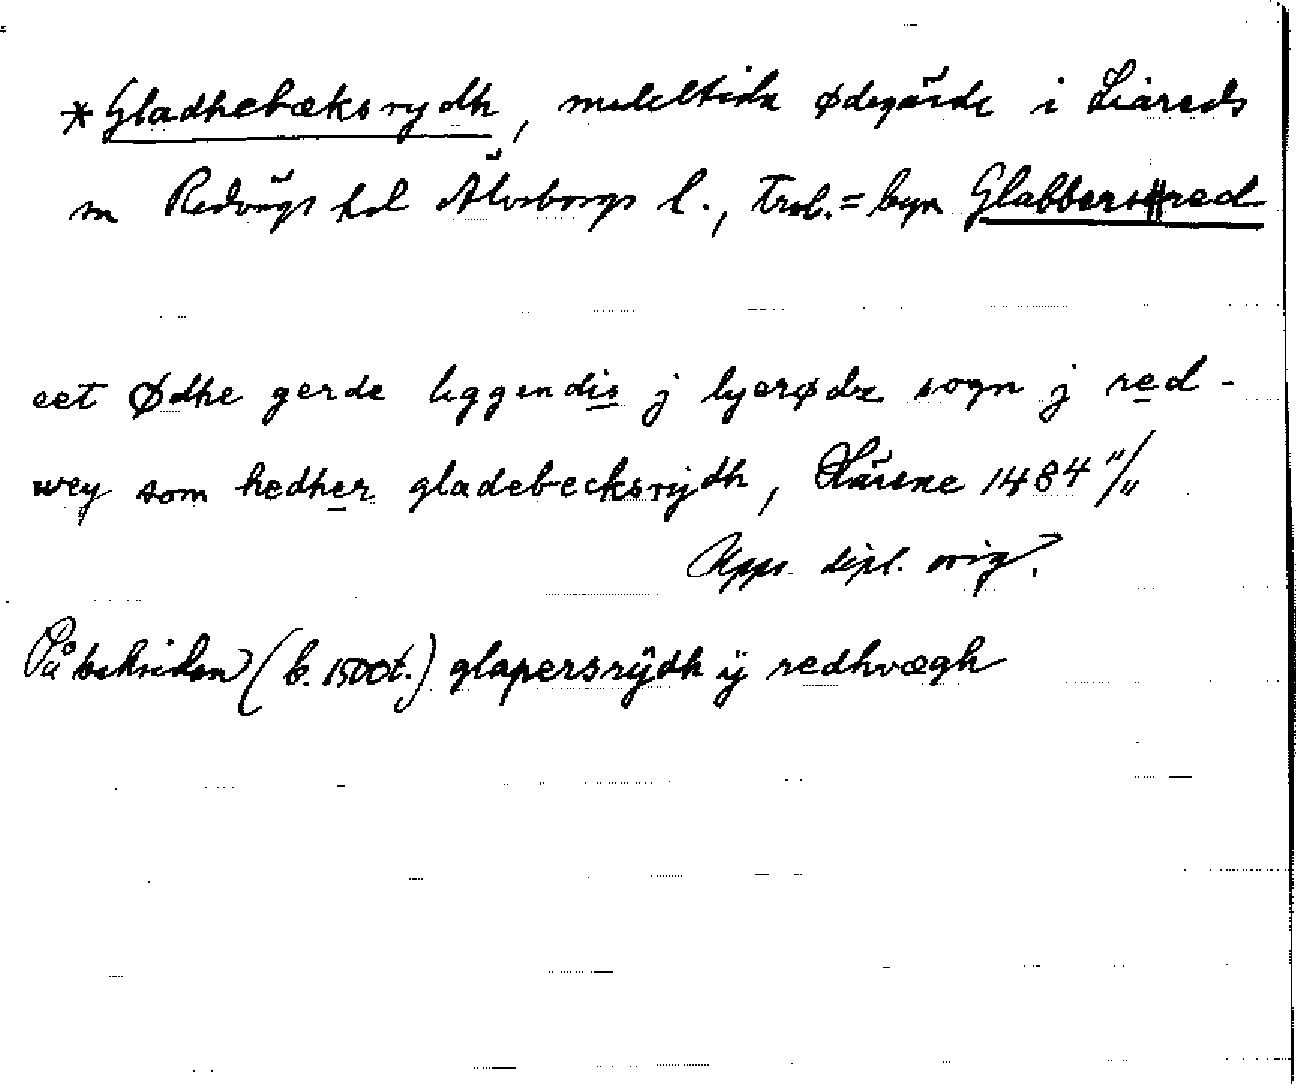 *Gladhebæksrydh, medeltida ødegärde i Liareds
sn Redvägs hd Älvsborgs l., trol. = byn Glabbersred
eet Ødhe gerde liggendis j lyerøde sogn j red-
wey som hedher gladebecksrydh, Skärsne 1484 11/11
Upps. dipl. orig.
På baksidan (b. 1500t.) glapersrÿdh ÿ redhvægh